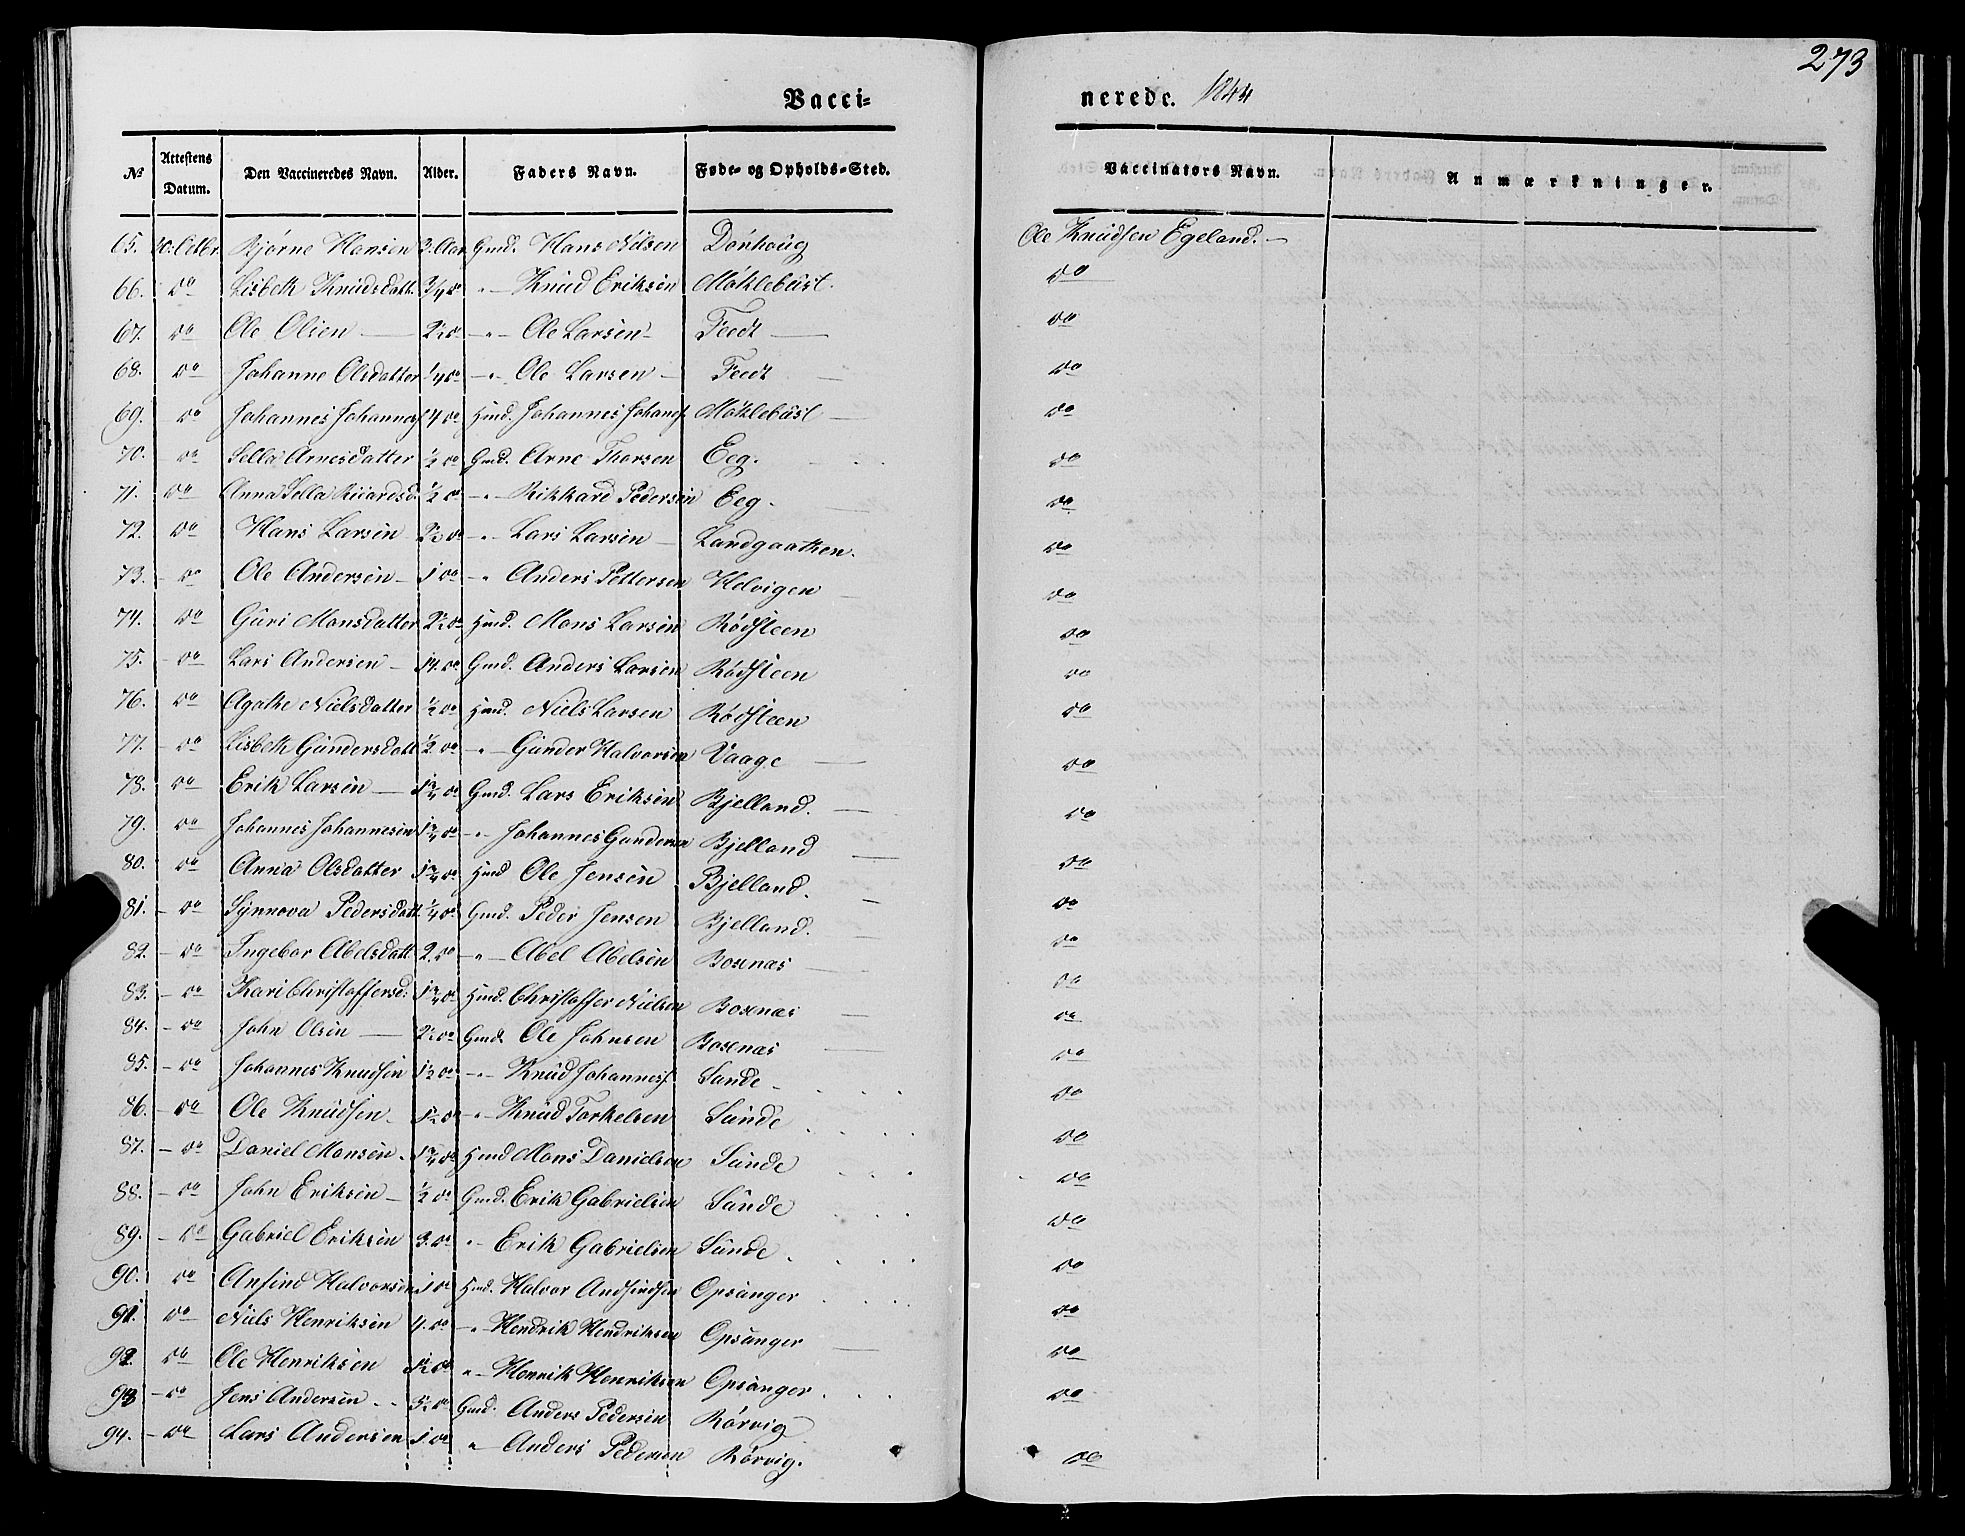 273
Vacci- nerede. 1844
№ Attestens Datum. Den Vaccineredes Navn. Alder. Faders Navn. Føde- og Opholds-Sted. Vaccinators Navn. Anmærkninger.
65. Bjørne Hansen 3. Aar Gmd. Hans Nilsen Ole Knudsen Egeland.
66. do Lisbeth Knudsdatt. 3/4 do " Knud Eriksen Møklebust. do
67. do Ole Olsen 2½ do " Ole Larsen Feedt do
68. do Johanne Olsdatter ¼ do " Ole Larsen Feedt do
69. do Johannes Johannes 4 do Huusmd. Johannes Møklebust do
70. do Sella Arnesdatter ½ do Gmd. Arne Thorsen Eeg. do
71. do Anna Sella Ricardsd. ½ do " Rikkard Pedersen Eeg. do
72. do Hans Larsen 2½ do " Lars Larsen Landgaathen. do
73. do Ole Andersen 1 do " Anders Pettersen Helvigen do
74. do Guri Monsdatter 2½ do Hmd. Mons Larsen Rødsteen do
75. do Lars Andersen do Gmd. Anders Larsen Rødsteen do
76. do Agathe Nielsdatter ½ do Hmd. Niels Larsen Rødsteen do
77. do Lisbeth Gundersdatt ½ do " Gunder Halvorsen Vaage do
78. do Erik Larsen 1¾ do Gmd. Lars Eriksen Bjelland. do
79. do Johannes Johannesen 1¾ do " Johannes Gundersen Bjelland do
80. do Anna Olsdatter 1¾ do Hmd Ole Jensen Bjelland. do
81. do Synnova Pedersdatt. ¼ do Gmd. Peder Jensen Bjelland. do
82. do Ingebor Abelsdatt 2. do " Abel Abelsen Bosenæs do
83. do Kari Christoffersd: 1¾ do Hmd. Christoffer Nielsen Bosenæs do
84. do John Olsen 2½ do Gmd. Ole Johnsen Bosenæs do
85. do Johannes Knudsen 1½ do " Knud Johannes. Sunde do
86. do Ole Knudsen 1½ do " Knud Torkelsen Sunde do
87. do Daniel Monsen 1¾ do Hmd Mons Danielsen Sunde do
88. do John Eriksen ½ do Gmd. Erik Gabrielsen Sunde do
89. do Gabriel Eriksen 3. do " Erik Gabrielsen Sunde do
90. do Anfind Halvorsen 1 do Hmd. Halvor Andfindsen Opsanger do
91. do Niels Henriksen 4. do " Hendrik Hendriksen Opsanger do
92. do Ole Henriksen 1½ do " Henrik Henriksen Opsanger do
93 do Jens Andersen do Gmd. Anders Pedersen Rørvig do
94. do Lars Andersen 1 do " Anders Pedersen Rørvig. do